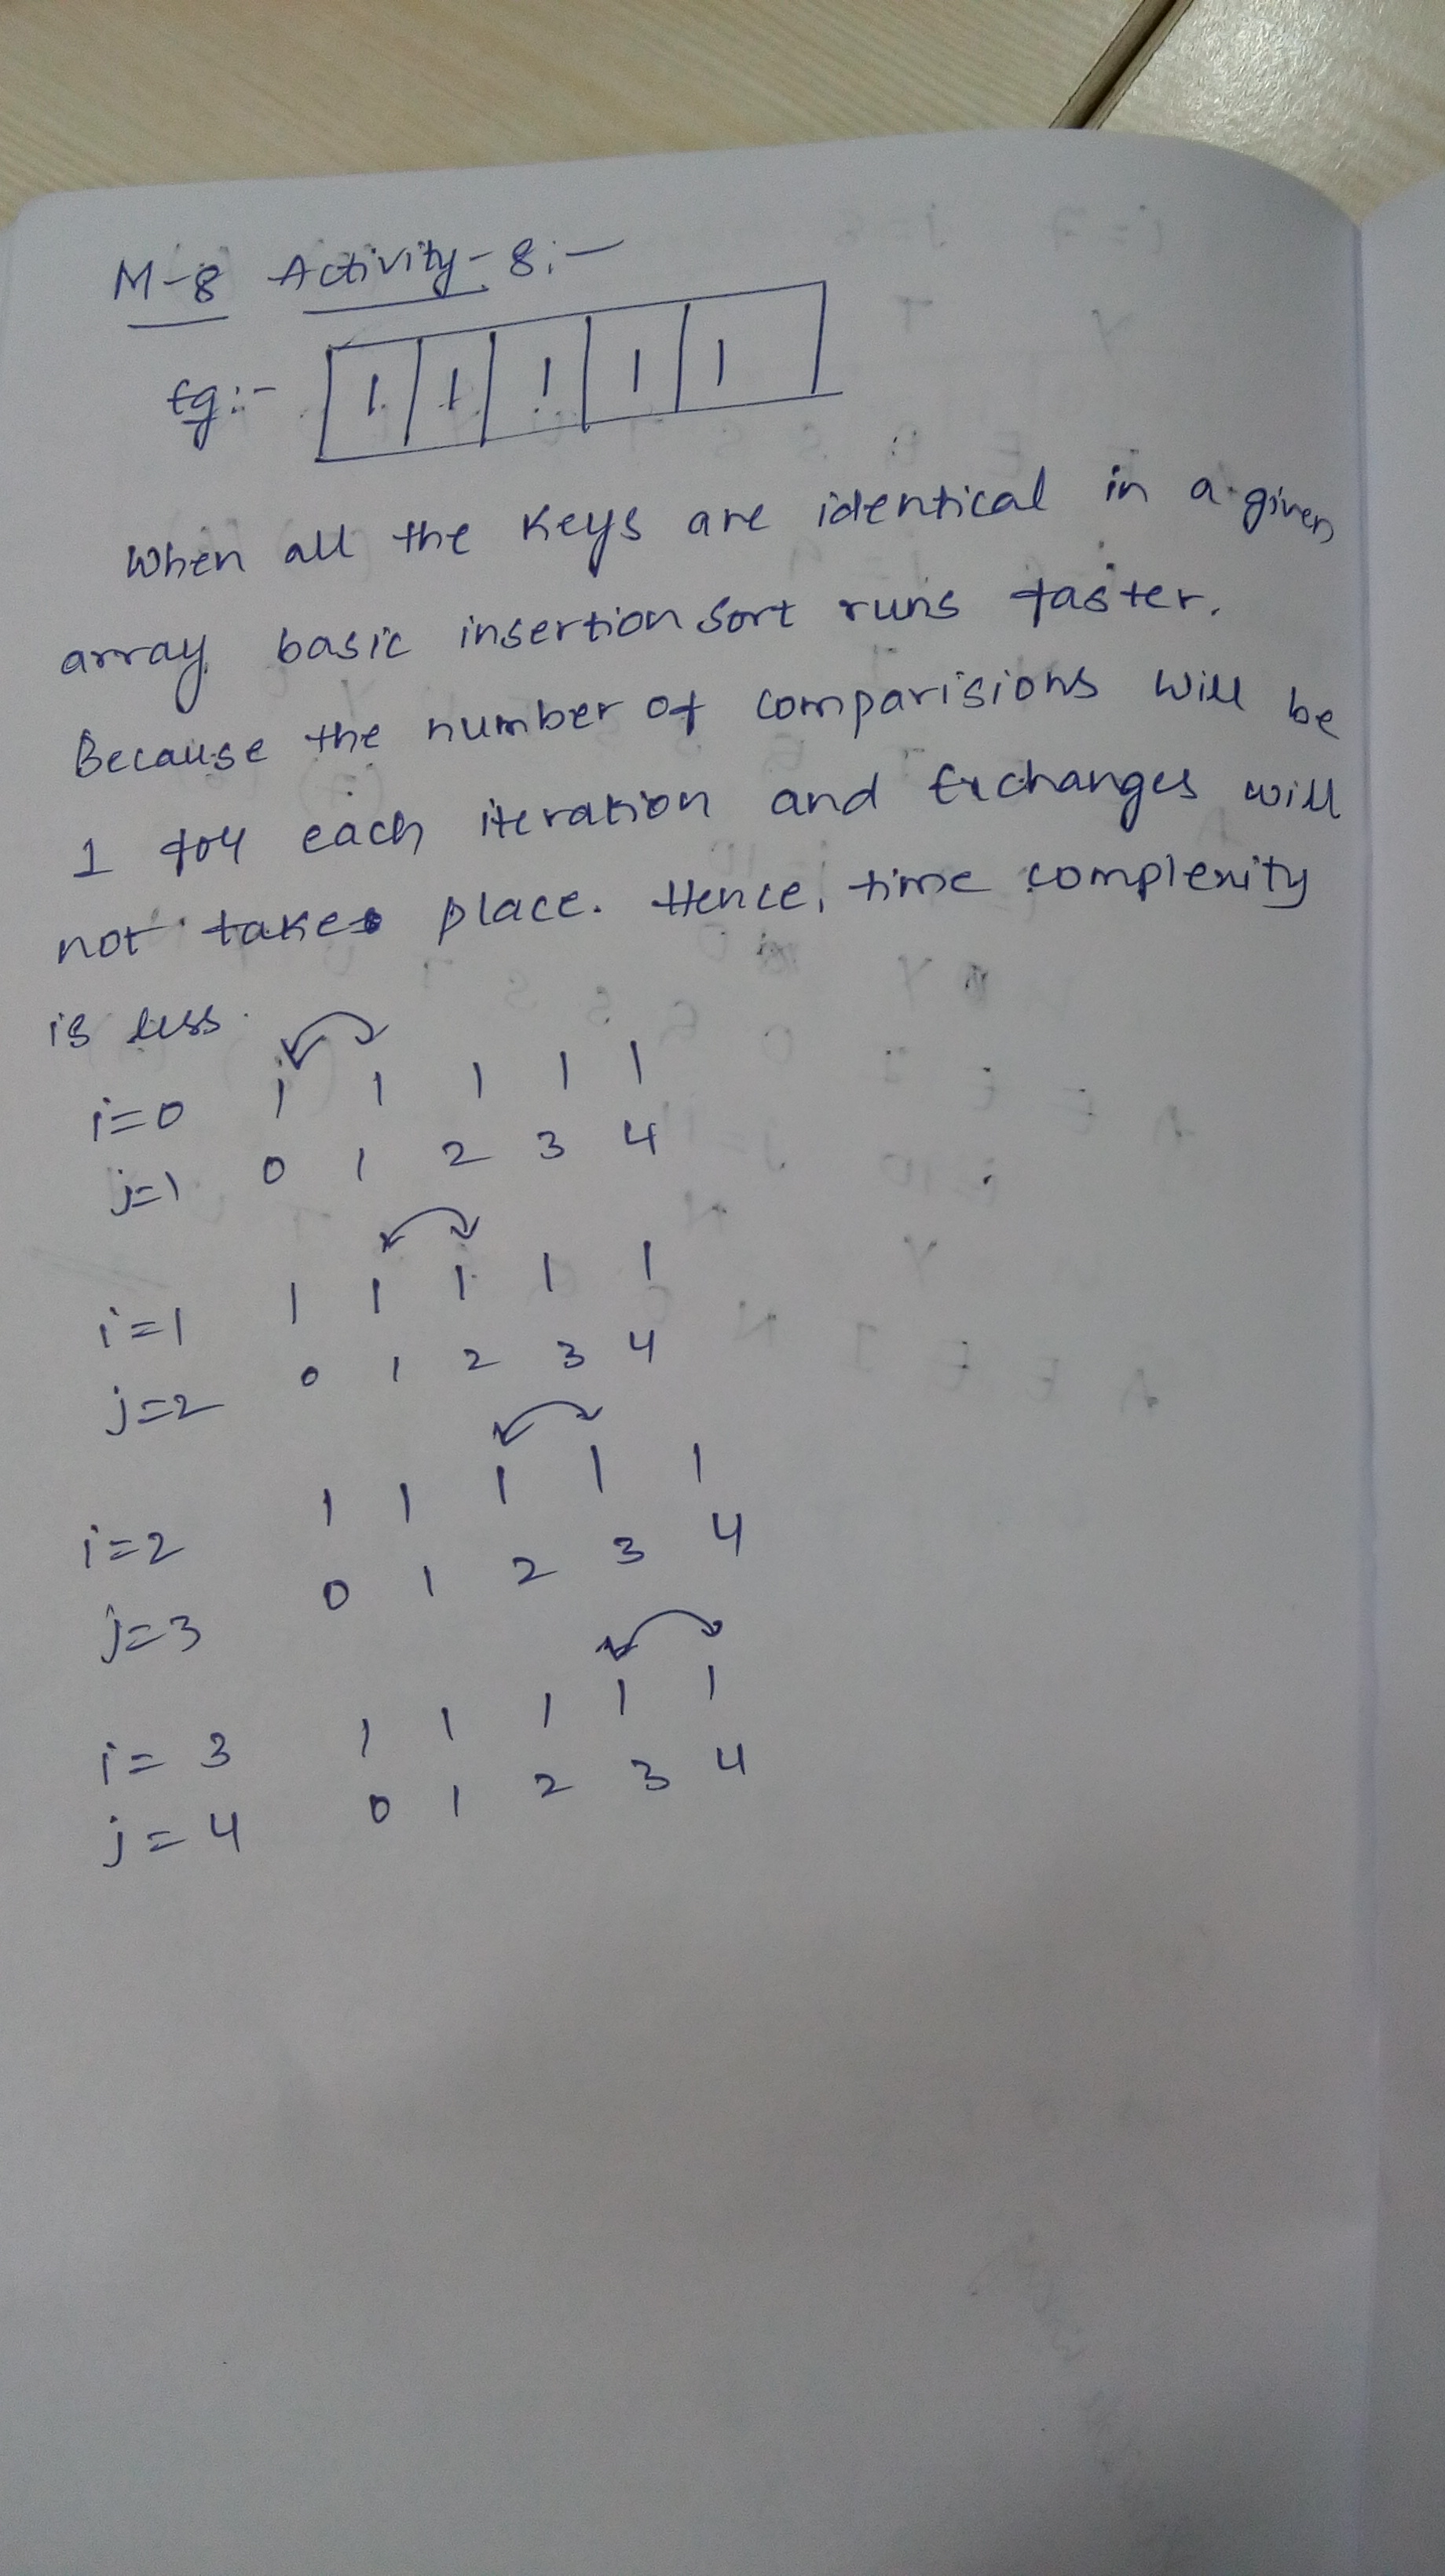 M-8 Activity-8:-
Eg:- 1 1 1 1 1
When all the Keys are identical in a given
array basic insertion sort runs faster.
Because the number of comparisions will be
1 for each iteration and Exchanges will
not take place. Hence, time complexity
is less.
i=0 1 1 1 1 1
j=1 0 1 2 3 4
i=1 1 1 1 1 1
j=2 0 1 2 3 4
i=2 1 1 1 1 1
j=3 0 1 2 3 4
i=3 1 1 1 1 1
j=4 0 1 2 3 4